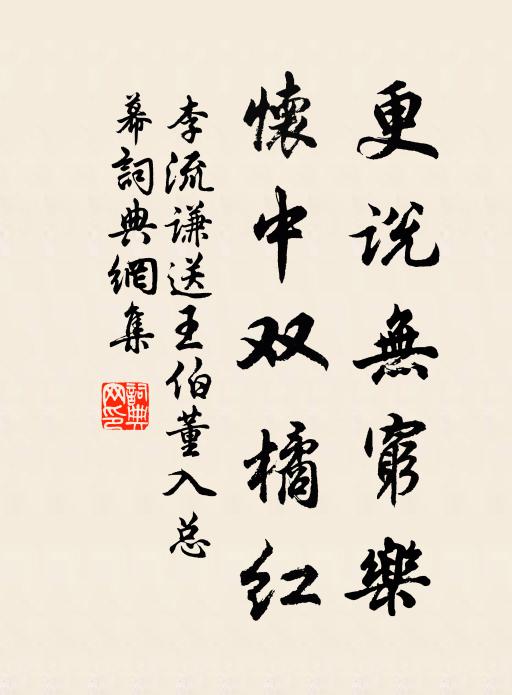 更说無窮樂
懷中双橘红
李流谦送王伯董入总
幕詞典網集
詞典
网印